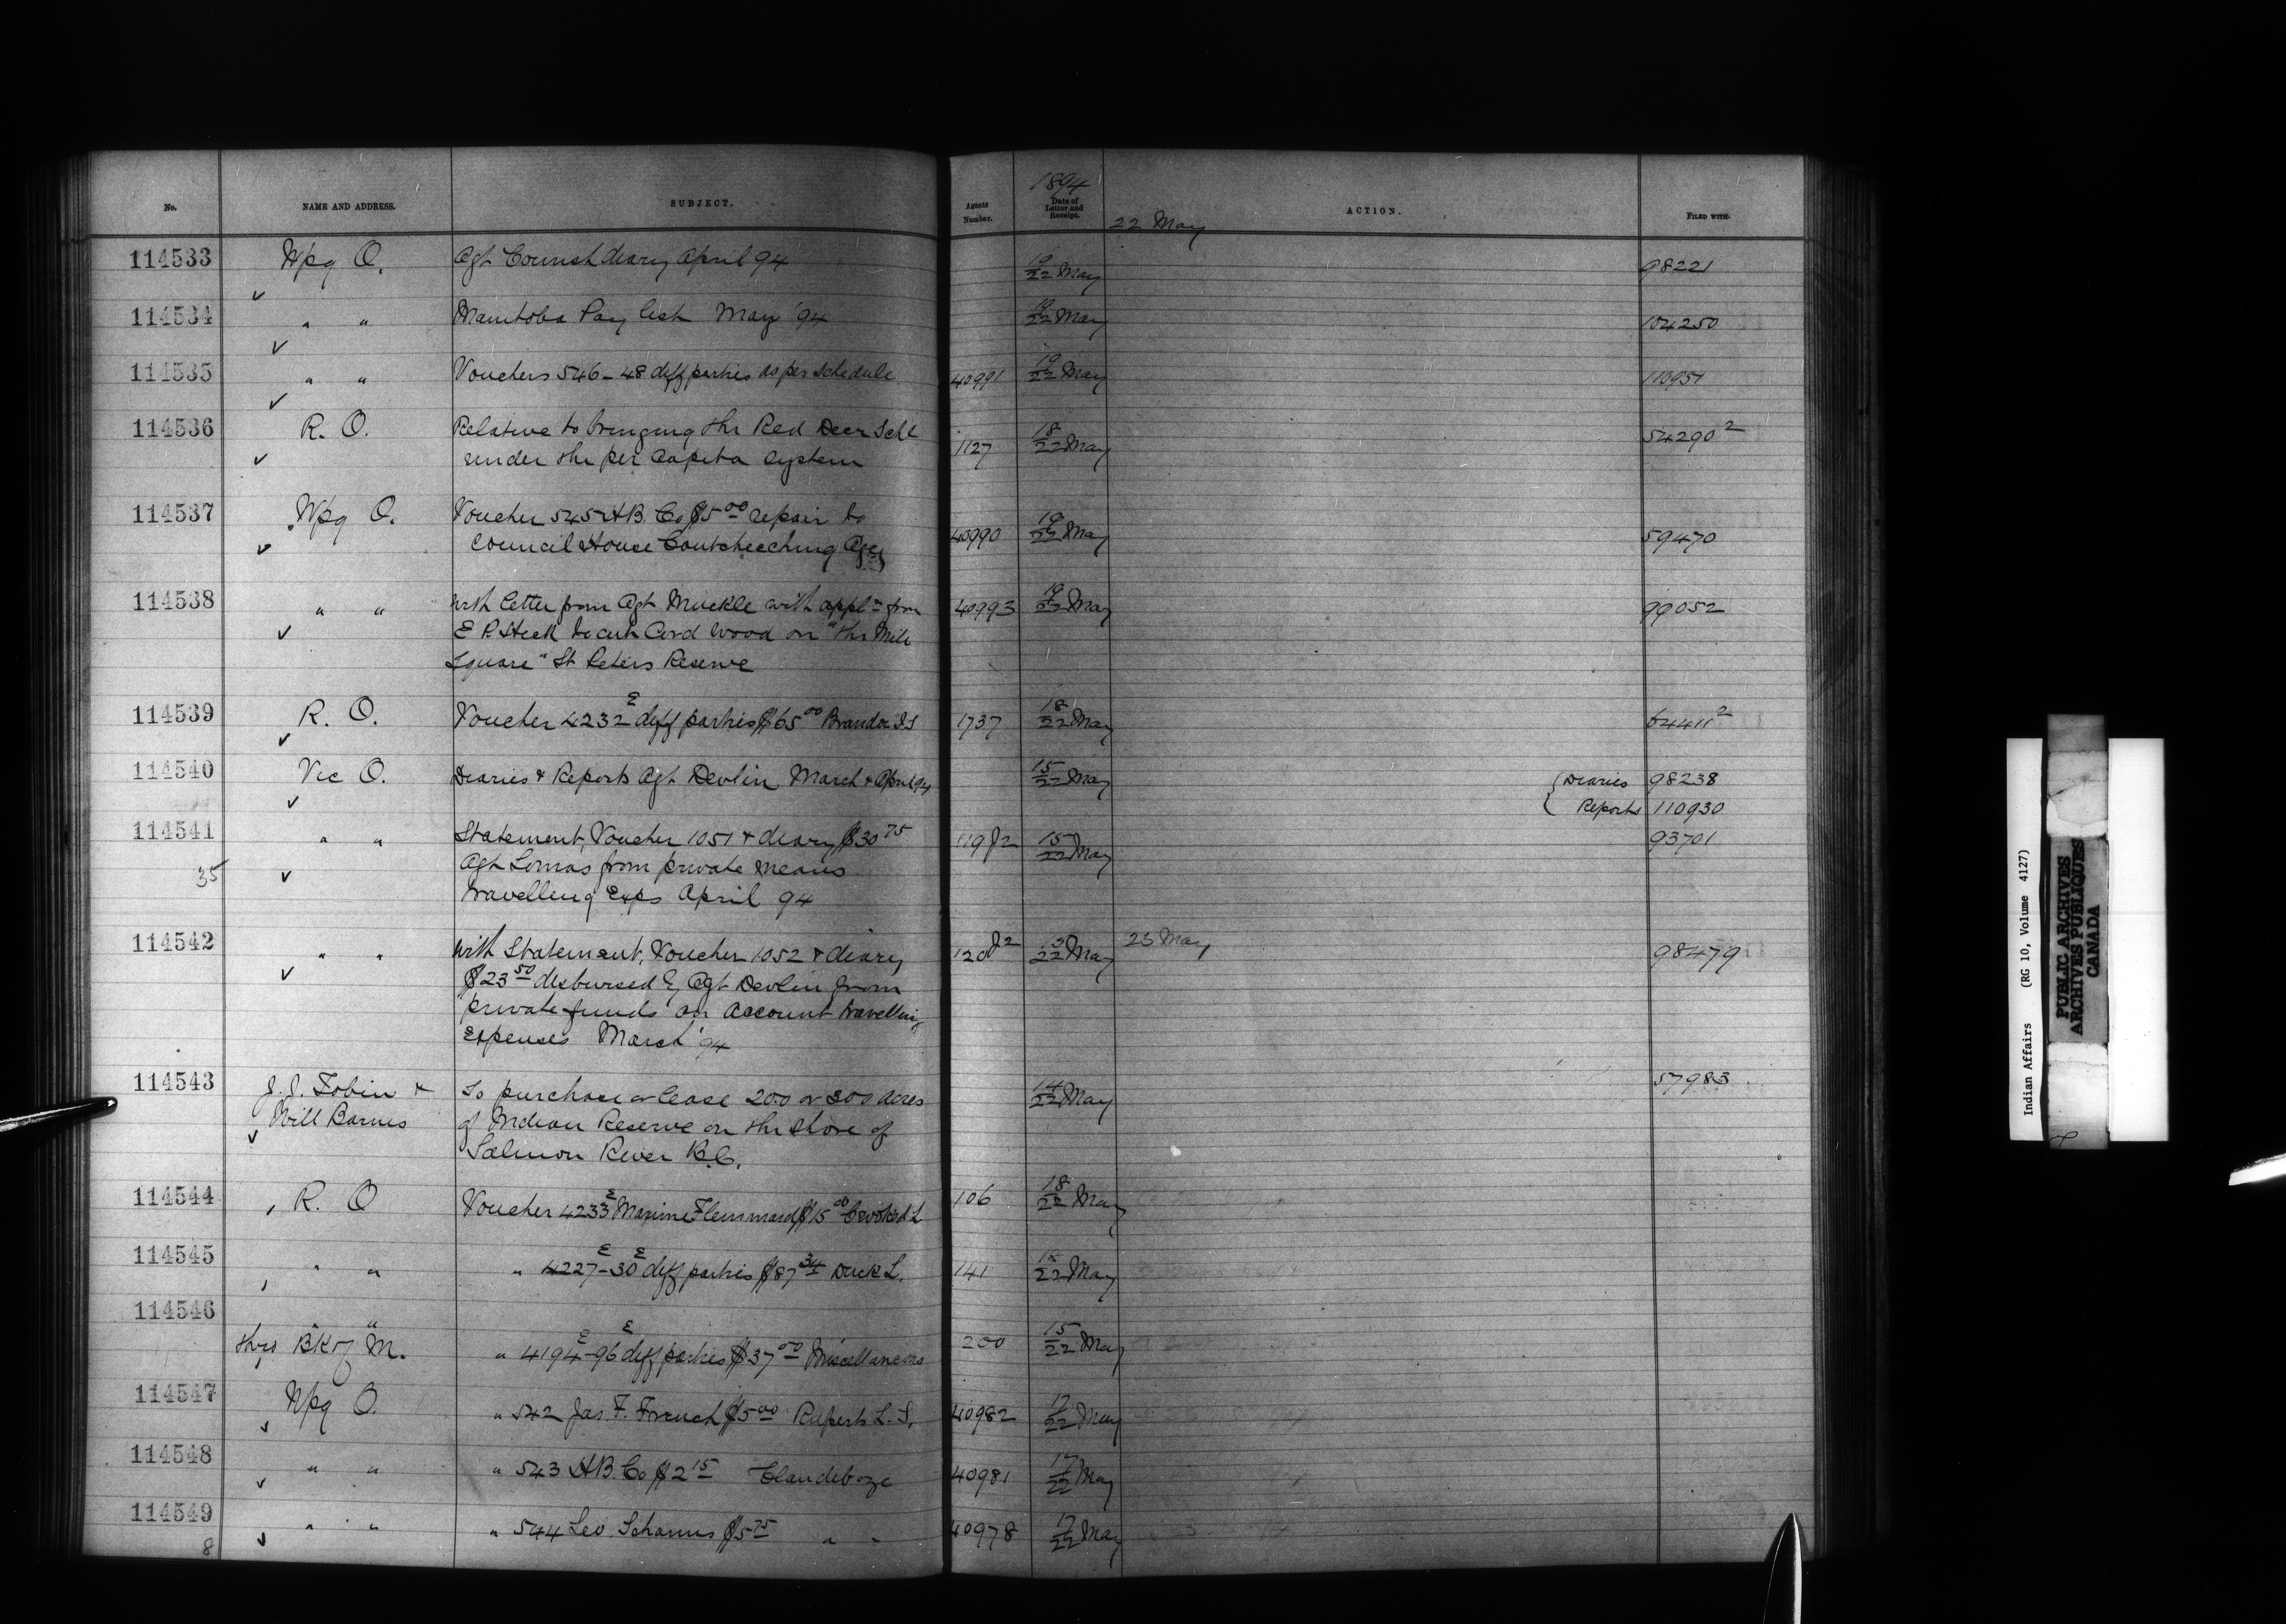 No. NAME AND ADDRESS. SUBJECT. Agents Number. 1894 Date of Letter and Receipt. ACTION. FILED WITH.
22 May
114533 Wpg O. Agt Cornish diary April 94 19/22 May 98221
114534 " " Manitoba Pay list May '94 19/22 May 104250
114535 " " Vouchers 546-48 diff parties as per Schedule 40991 19/22 May 110951
114536 R. O. Relative to bringing the Red Deer Schl 1127 18/22 May 54290²
under the per Capita System
114537 Wpg O. Voucher 545 H.B. Co $5 00 repair to 40990 19/22 May 59470
Council House Coutcheeching Agcy
114538 " " with letter from Agt Muckle with appln from 40993 19/22 May 99052
E P. Heck to cut Cord Wood on "the Mile
Square" St Peters Reserve
114539 R. O. Voucher 4232 E diff parties $65 00 Brandon I S 1737 18/22 May 64411²
114540 Vic O. Diaries & Reports Agt Devlin March & April 94 15/22 May Diaries 98238
Reports 110930
114541 " " Statement, Voucher 1051 & diary $30 75 119 J2 15/22 May 93701
35 Agt Lomas from private means
travelling Exps April 94
114542 " " with Statement, Voucher 1052 & diary 120 J2 15/22 May 23 May 98479
$23 50 disbursed by Agt Devlin from
private funds on account travelling
expenses March '94
114543 J. J. Tobin & To purchase or lease 200 or 300 acres 14/22 May 57983
Will Barnes of Indian Reserve on the shore of
Salmon River B.C.
114544 R. O Voucher 4233 E Maxime $15 00 Crooked L 106 18/22 May
114545 " " " 4227-30 E E diff parties $87 34 Duck L. 141 18/22 May
114546 " "
thro Bk of M. " 4194-96 E E diff parties $37 00 Miscellaneous 200 15/22 May
114547 Wpg O. " 542 Jas F. French $5 00 Ruperts L. S. 40982 17/22 May
114548 " " " 543 H.B. Co $2 15 Clandeboye 40981 17/22 May
114549 " " " 544 Leo. $5 75 " " 40978 17/22 May
8
Indian Affairs (RG 10, Volume 4127)
PUBLIC ARCHIVES
ARCHIVES PUBLIQUES
CANADA